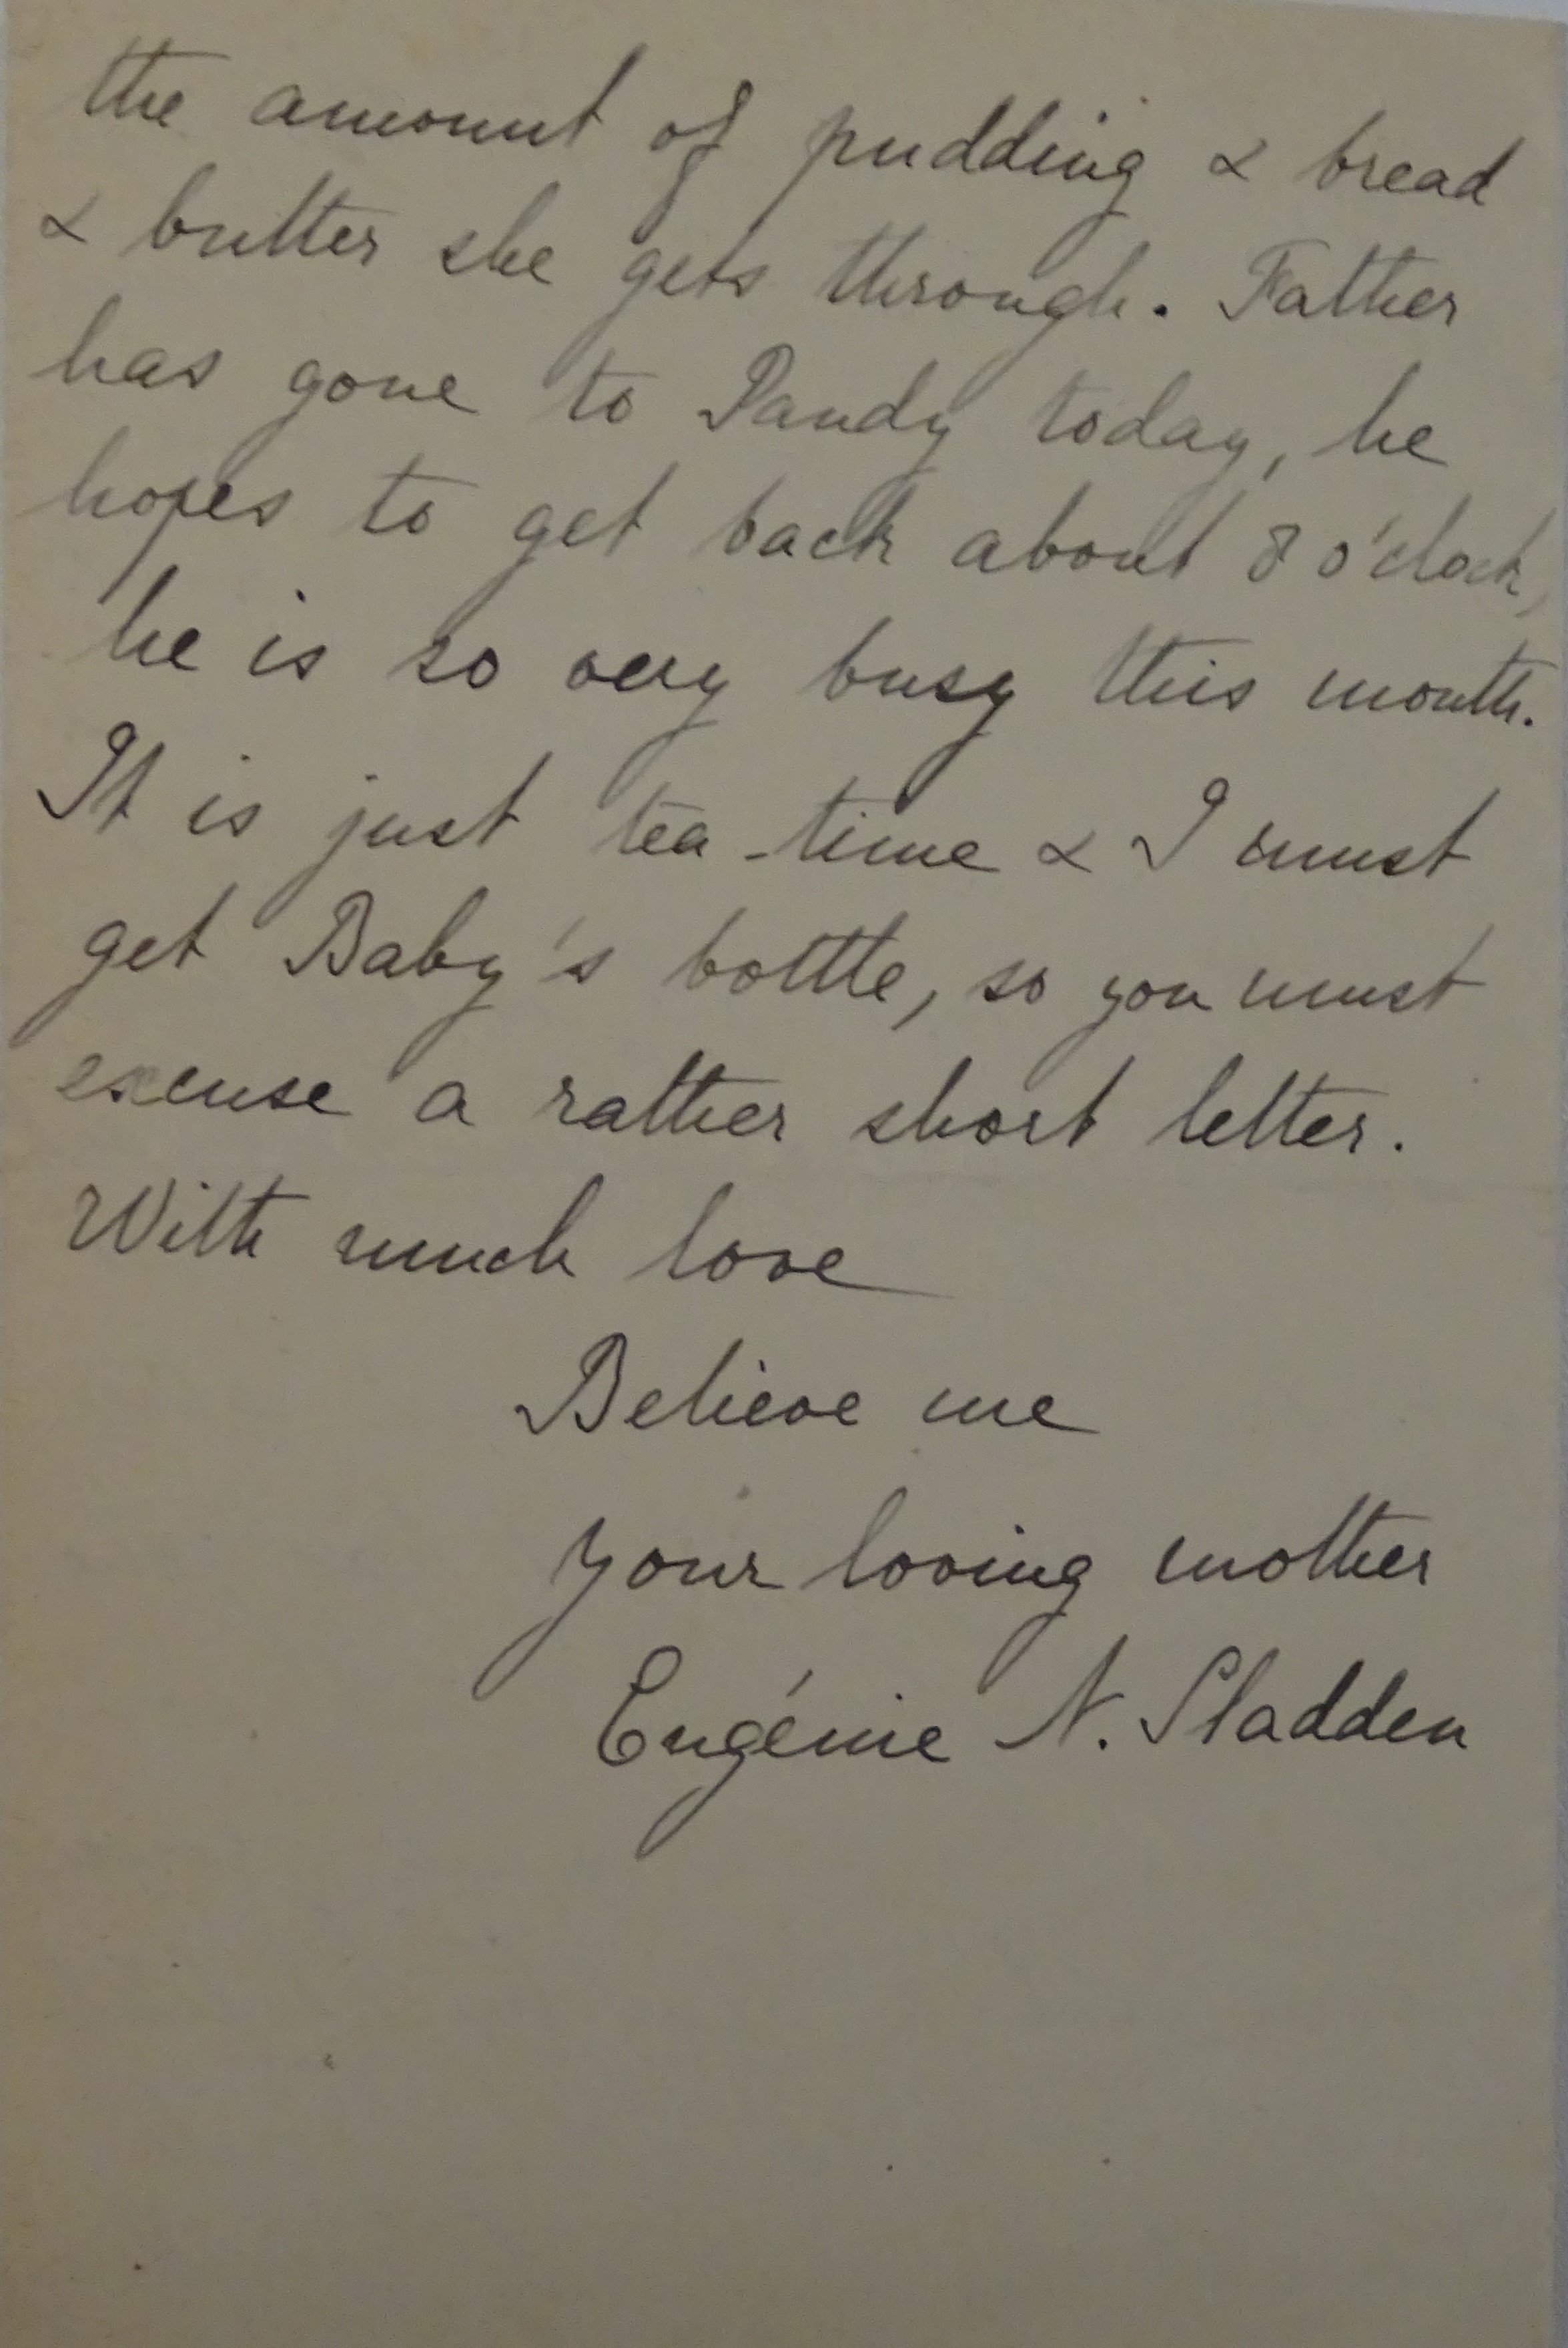 the amount of pudding & bread
& butter she gets through. Father
has gone to Pandy today, he
hopes to get back about 8 o'clock,
he is so very busy this month.
It is just tea-time & I must
get Baby's bottle, so you must
excuse a rather short letter.
With much love
Believe me
your loving mother
Eugénie N. Sladden